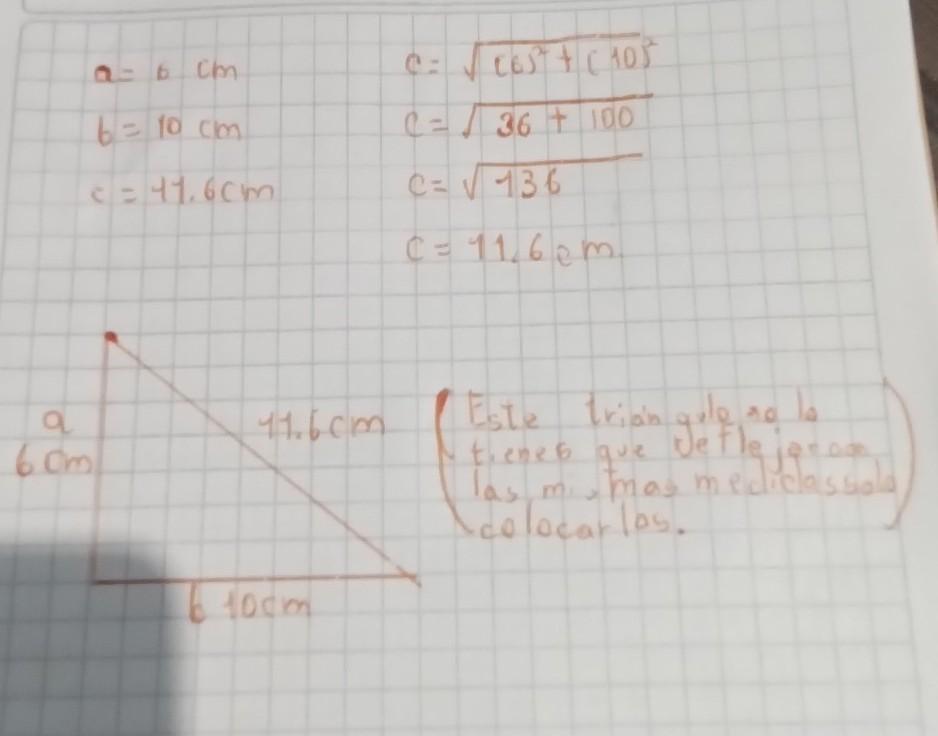 a = 6 cm
b = 10 cm
c = 11.6cm
c = √(6)² + (10)²
c = √36 + 100
c = √136
c = 11.6cm
a
6cm
11.6cm
b 10cm
(Este triangulo no lo
tienes que
las mismas medidas solo
colocarlas.)